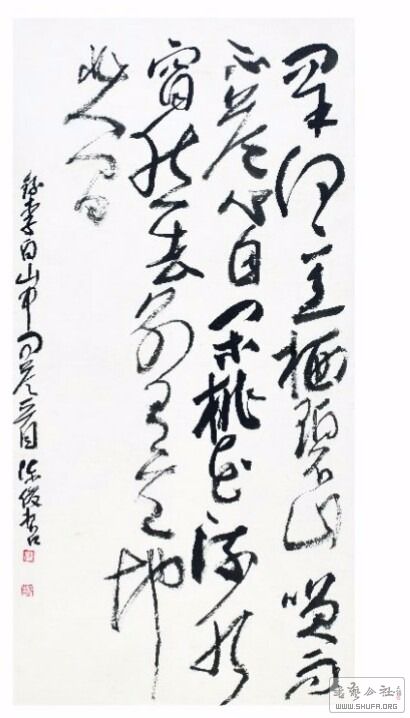 问余何意栖碧山咲而
不答心自闲桃花流水
窅然去别有天地
非人间
录李白山中问答一首
书艺公社
WWW.SHUFA.ORG